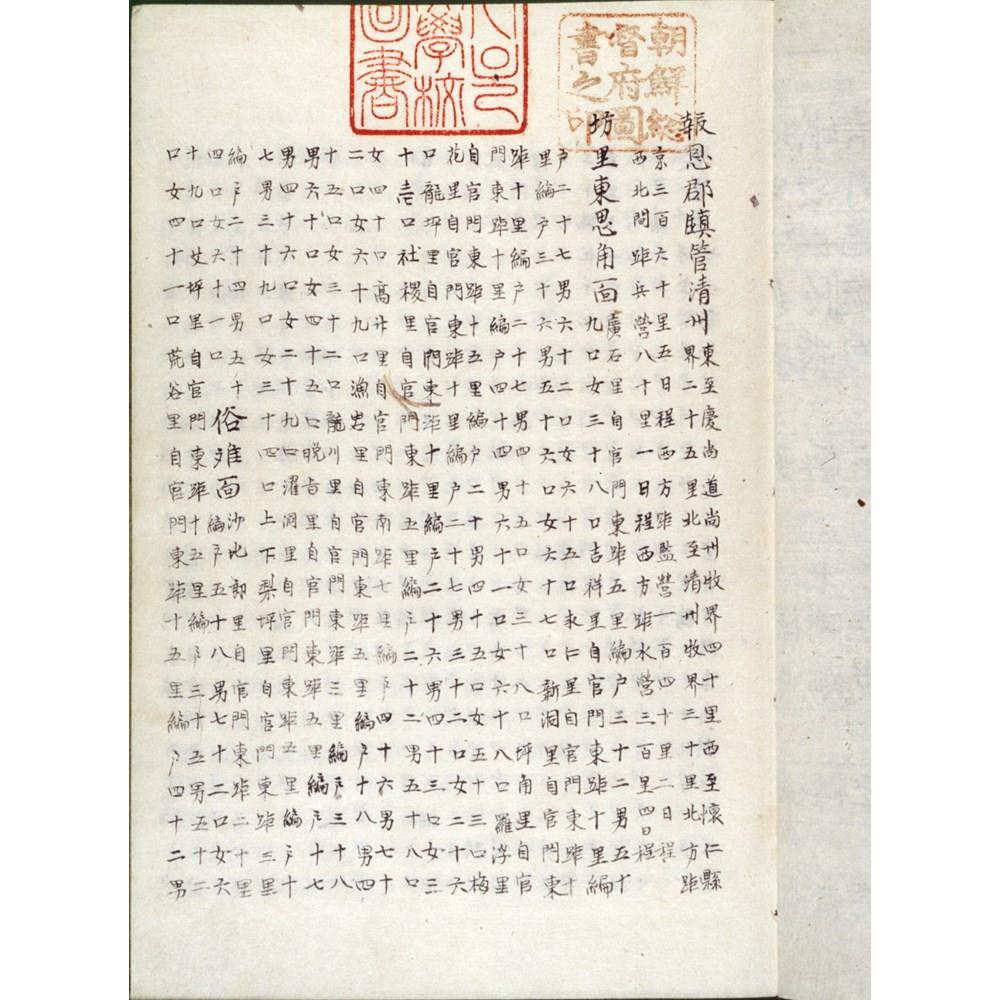 朝鮮總
督府圖
書之印
學校
圖書
報恩郡鎭管清州東至慶尚道尚州牧界四十里西至懷仁縣
界二十五里北至清州牧界三十里北方距
京三百六十里五日程西方距監營一百四十里二日程
西北間距兵營八十里一日程西方距水營三百里四日程
坊里東思角面廣石里自官門東距五里編戶三十二男五十
九口女三十八口吉祥里自官門東距十里編
戶二十七男六十二口女六十五口永仁里自官門東距十
里編戶三十六男五十六口女六十七口新洞里自官門東
距十里編戶二十七男四十五口女三十八口坪角里自官
門東距十里編戶四十四男六十一口女六十八口羅浮里
自官門東距十五里編戶二十男四十五口女五十三口梅
花里自官門東距十里編戶二十七男三十二口女二十六
口龍坪里自官門東距十里編戶二十六男四十三口女三
十壱口社稷里自官門東距五里編戶二十二男五十八口
女四十口高升里自官門東南距七里編戶四十六男七十
二口女六十九口漁岩里自官門東距五里編戶十八男四
十五口女三十二口龍川里自官門東距三里編戶三十八
男六十口女四十五口晩音里自官門東距五里編戶十七
男四十六口女二十九口濯洞里自官門東距五里編戶十
七男三十九口女三十四口上下梨坪里自官門東距三里
編戶二十四男五十
四口女六十一口
俗離面沙比郞里自官門東距二十里
編戶五十八男七十二口女六
十九口艾坪里自官門東距十五里編戶三十五男五十二
口女四十一口荒谷里自官門東距十五里編戶四十二男